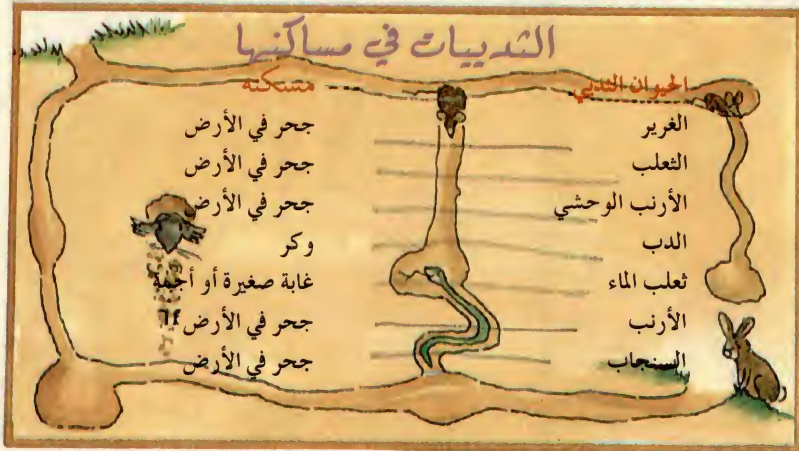 الثدييات في مساكنها
الحيوان الثديي مسكنه
الغرير جحر في الأرض
الثعلب جحر في الأرض
الأرنب الوحشي جحر في الأرض
الدب وكر
ثعلب الماء غابة صغيرة أو أجمة
الأرنب جحر في الأرض ٦٤
السنجاب جحر في الأرض